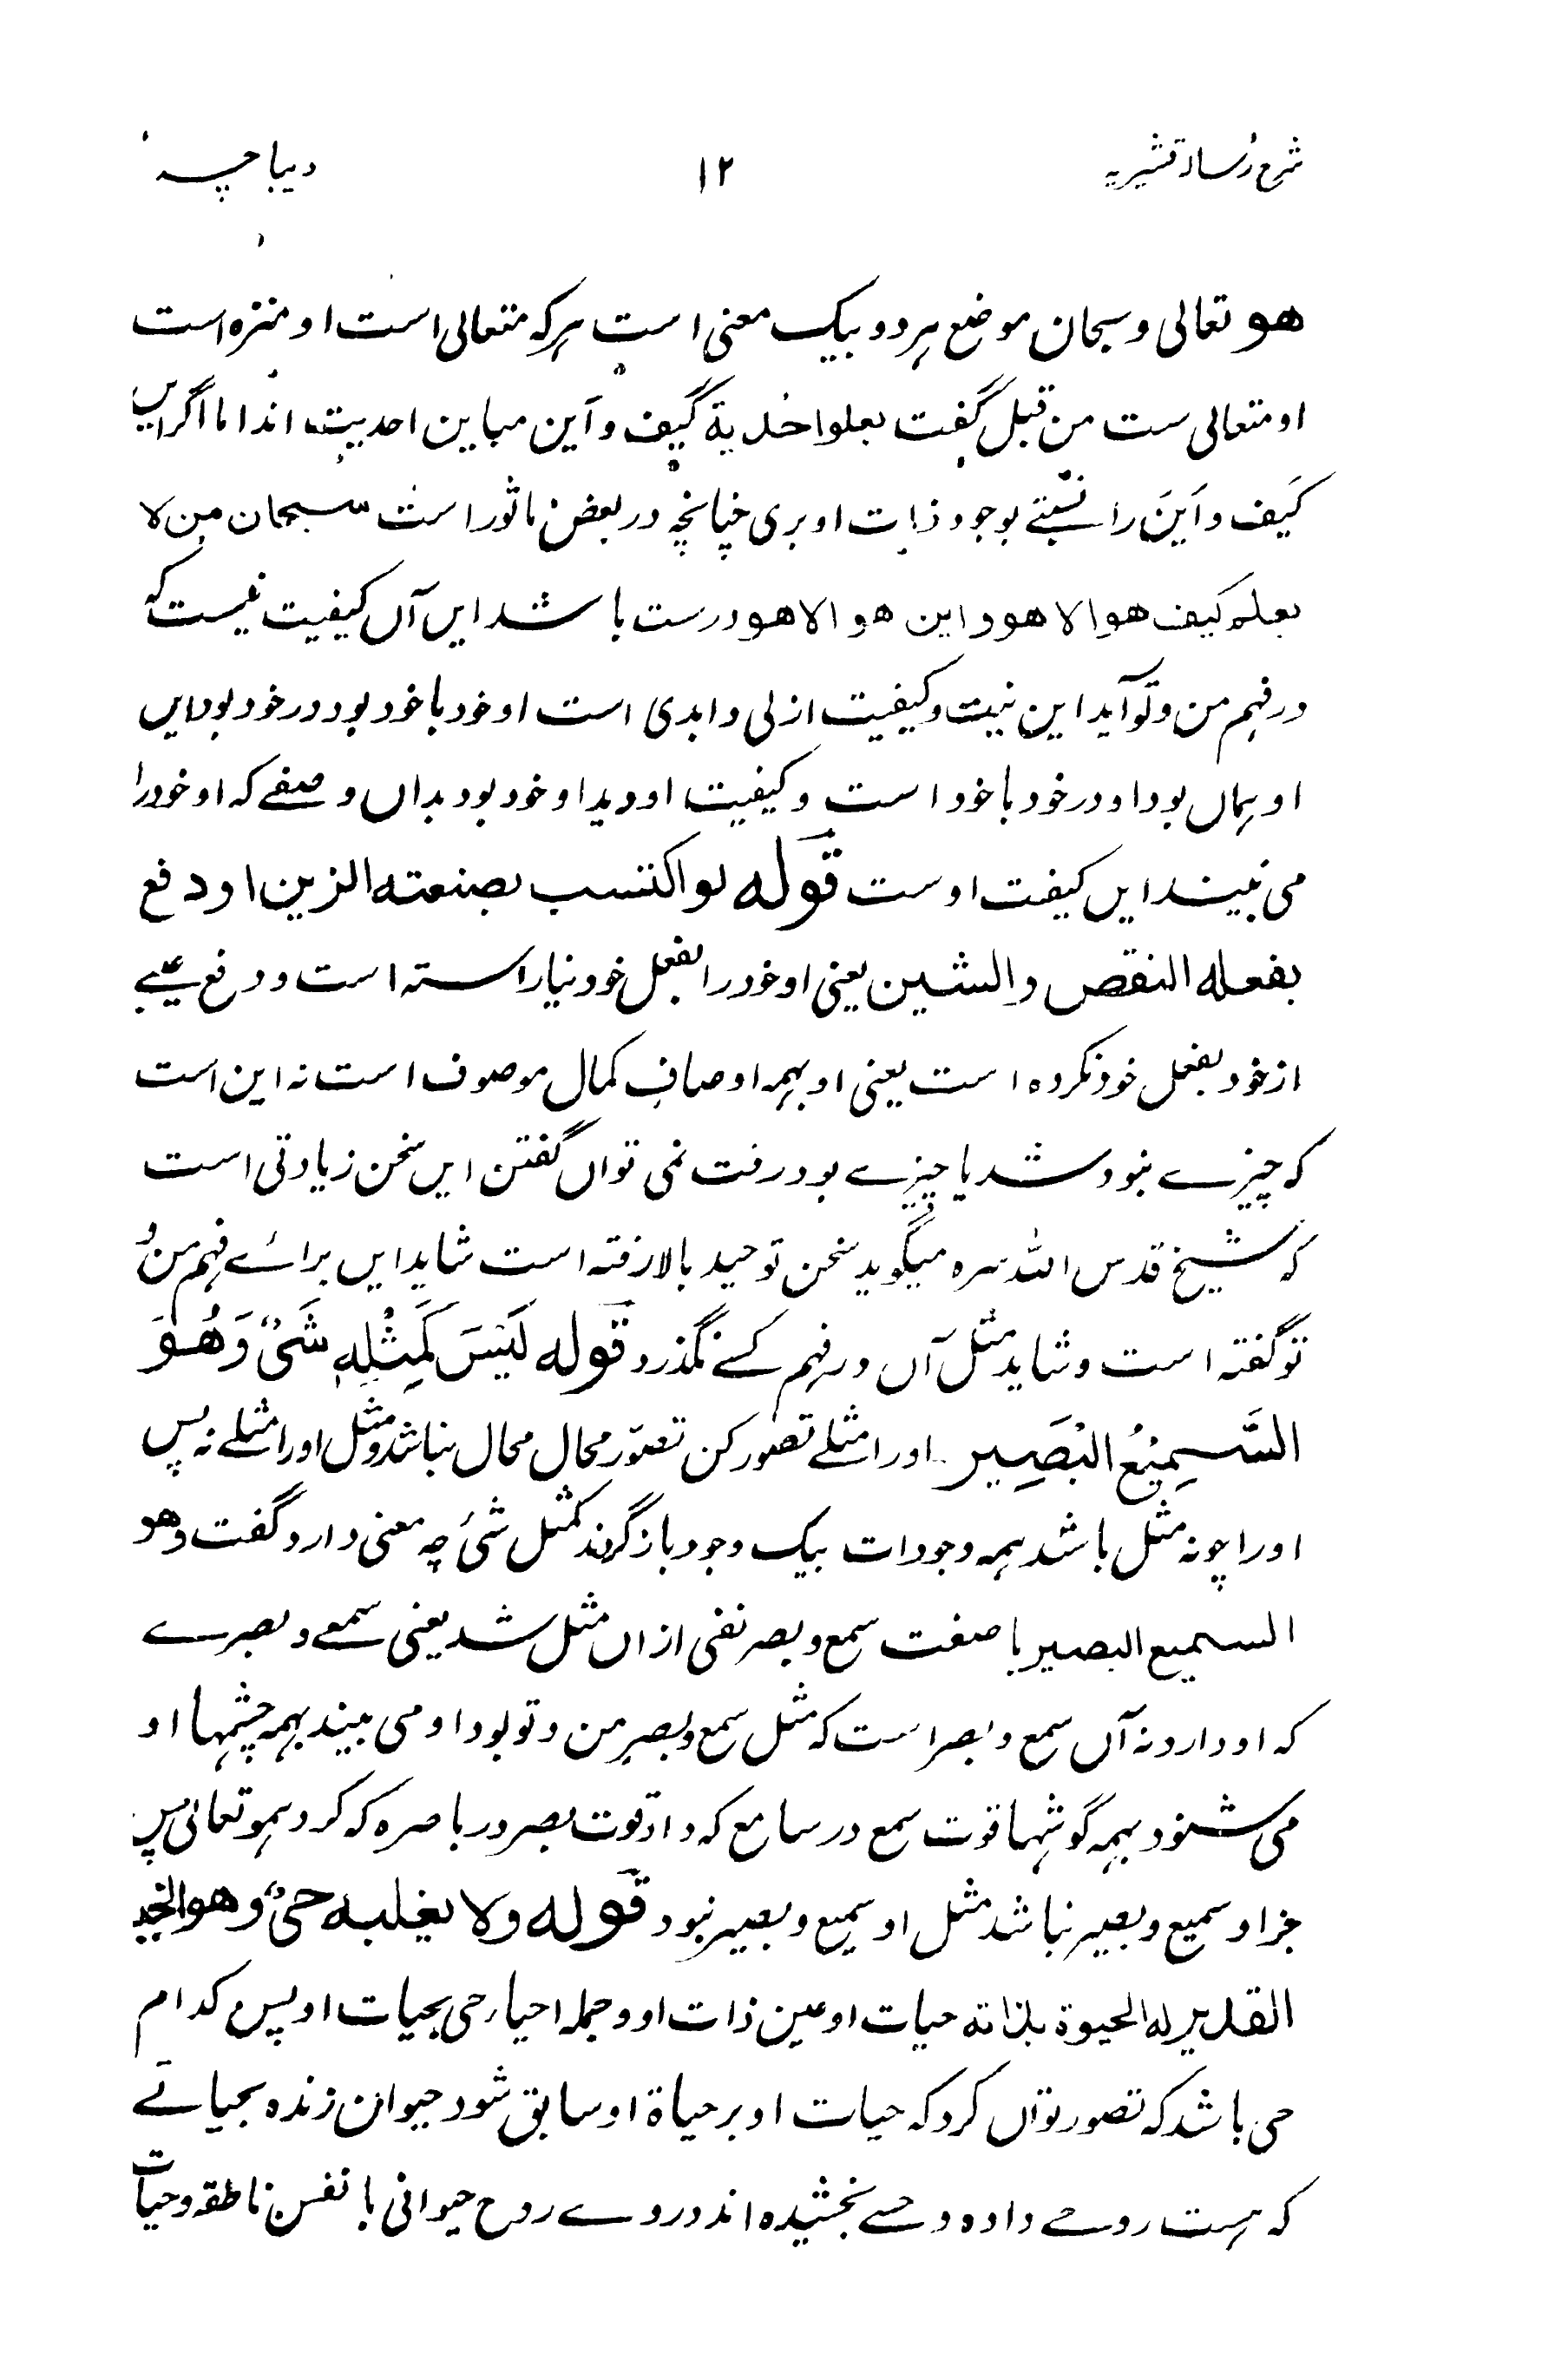 شرح رساله قشیریه ۱۲ دیباچہ
هو تعالی و سبحان موضع ہر دو بیک معنی است ہر کہ متعالی است او منزہ است
او متعالی ست من قبل گفت بعلو احدیة کیف و أین مباین احدیت اند اما اگر ایں
کَیف و اَینَ را نسبتے بوجود ذات او بری چنانچہ در بعض ماثور است سبحان من لا
یعلم کیف هو الا هو و این هو الا هو درست باشد ایں آں کیفیت نیست کہ
در فہم من و تو آید این نیت و کیفیت ازلی و ابدی است او خود با خود بود در خود بود ایں
او ہماں بود او در خود با خود است و کیفیت او دید او خود بود بداں وصفے کہ او خود را
می بیند ایں کیفت اوست قوله لو اکتسب بصنعته الزین او دفع
بفعله النقص والشین یعنی او خود را بفعل خود نیاراستہ است و دفع عیبے
از خود بفعل خود نکردہ است یعنی او بہمہ اوصاف کمال موصوف است نہ این است
کہ چیزے نبود شد یا چیزے بود رفت نمی تواں گفتن ایں سخن زیادتی است
کہ شیخ قدس اللہ سرہ میگوید سخن توحید بالا رفتہ است شاید ایں برائے فہم من و
تو گفتہ است و شاید مثل آں در فہم کسے نگذرد قوله لَیْسَ کَمِثْلِهٖ شَیْءٌ وَهُوَ
السَّمِیْعُ الْبَصِیر او را مثلے تصور کن تصوّر محال محال نباشد و مثل او را مثلے نہ پس
او را چونہ مثل باشد ہمہ وجودات بیک وجود باز گردند کمثل شیٔ چہ معنی دارد گفت وهو
السمیع البصیر با صفت سمع و بصر نفی ازاں مثل شد یعنی سمعے و بصرے
کہ او دارد نہ آں سمع و بصر است کہ مثل سمع و بصر من و تو بود او می بیند بہمہ چشمہا او
می شنود بہمہ گوشہا قوت سمع در سامع کہ داد قوت بصر در باصرہ کہ کرد ہمو تعالیٰ پس
جز او سمیع و بصیر نباشد مثل او سمیع و بصیر نبود قوله ولا یغلبه حیٌّ وهو الخبیر
القدیر له الحیوة بذاته حیات او عین ذات او و جملہ احیاء حی بحیات او پس کدام
حی باشد کہ تصور تواں کرد کہ حیات او بر حیاة او سابق شود حیوان زندہ بحیاتے
کہ ہست روحے دادہ و حسے بخشیدہ اند در وے روح حیوانی با نفس ناطقہ و حیات